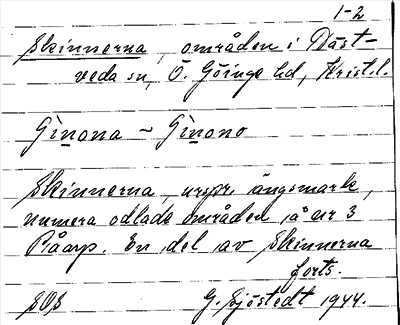 1-2
Skinnerna, områden i Näst-
veda sn, Ö. Göinge hd, Krist.l.
Gìnona - Gìnono
Skinnerna, urspr. ängsmark,
numera odlade områden, å nr 3
Råarp. En del av Skinnerna
forts.
SOS G. Sjöstedt 1944.